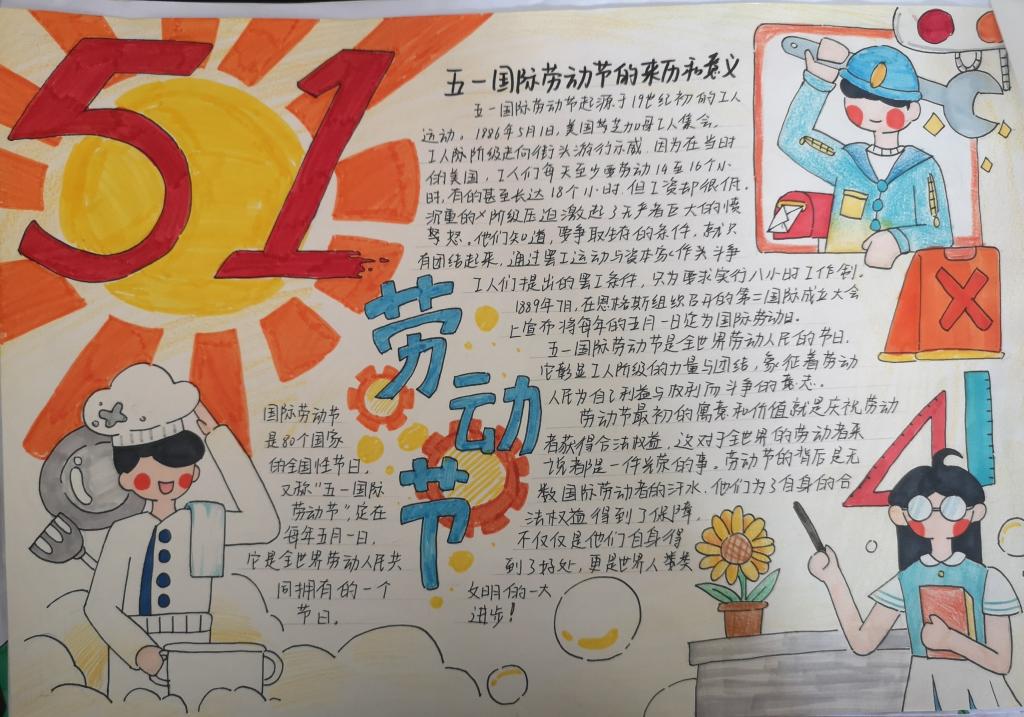 51
五一国际劳动节的来历和意义
五一国际劳动节起源于19世纪初的工人
运动。1886年5月1日,美国芝加哥工人集会。
工人阶级走向街头游行示威,因为在当时
的美国,工人们每天至少要劳动14至16个小
时,有的甚至长达18个小时,但工资却很低。
沉重的阶级压迫激起了无产者巨大的愤
怒。他们知道,要争取生存的条件,就只
有团结起来,通过罢工运动与资本家作斗争
工人们提出的罢工条件,只为要求实行八小时工作制。
1889年7月,在恩格斯组织召开的第二国际成立大会
上宣布将每年的五月一日定为国际劳动日。
五一国际劳动节是全世界劳动人民的节日.
它彰显工人阶级的力量与团结,象征着劳动
人民为自己利益与权利而斗争的意志.
劳动节最初的寓意和价值就是庆祝劳动
者获得合法权益,这对于全世界的劳动者来
说都是一件光荣的事。劳动节的背后是无
数国际劳动者的汗水,他们为了自身的合
法权益得到了保障,
不仅仅是他们自身得
到了好处,更是世界人类
文明的一大
进步!
劳动节
国际劳动节
是80个国家
的全国性节日。
又称“五一国际
劳动节”,定在
每年五月一日,
它是全世界劳动人民共
同拥有的一个
节日。